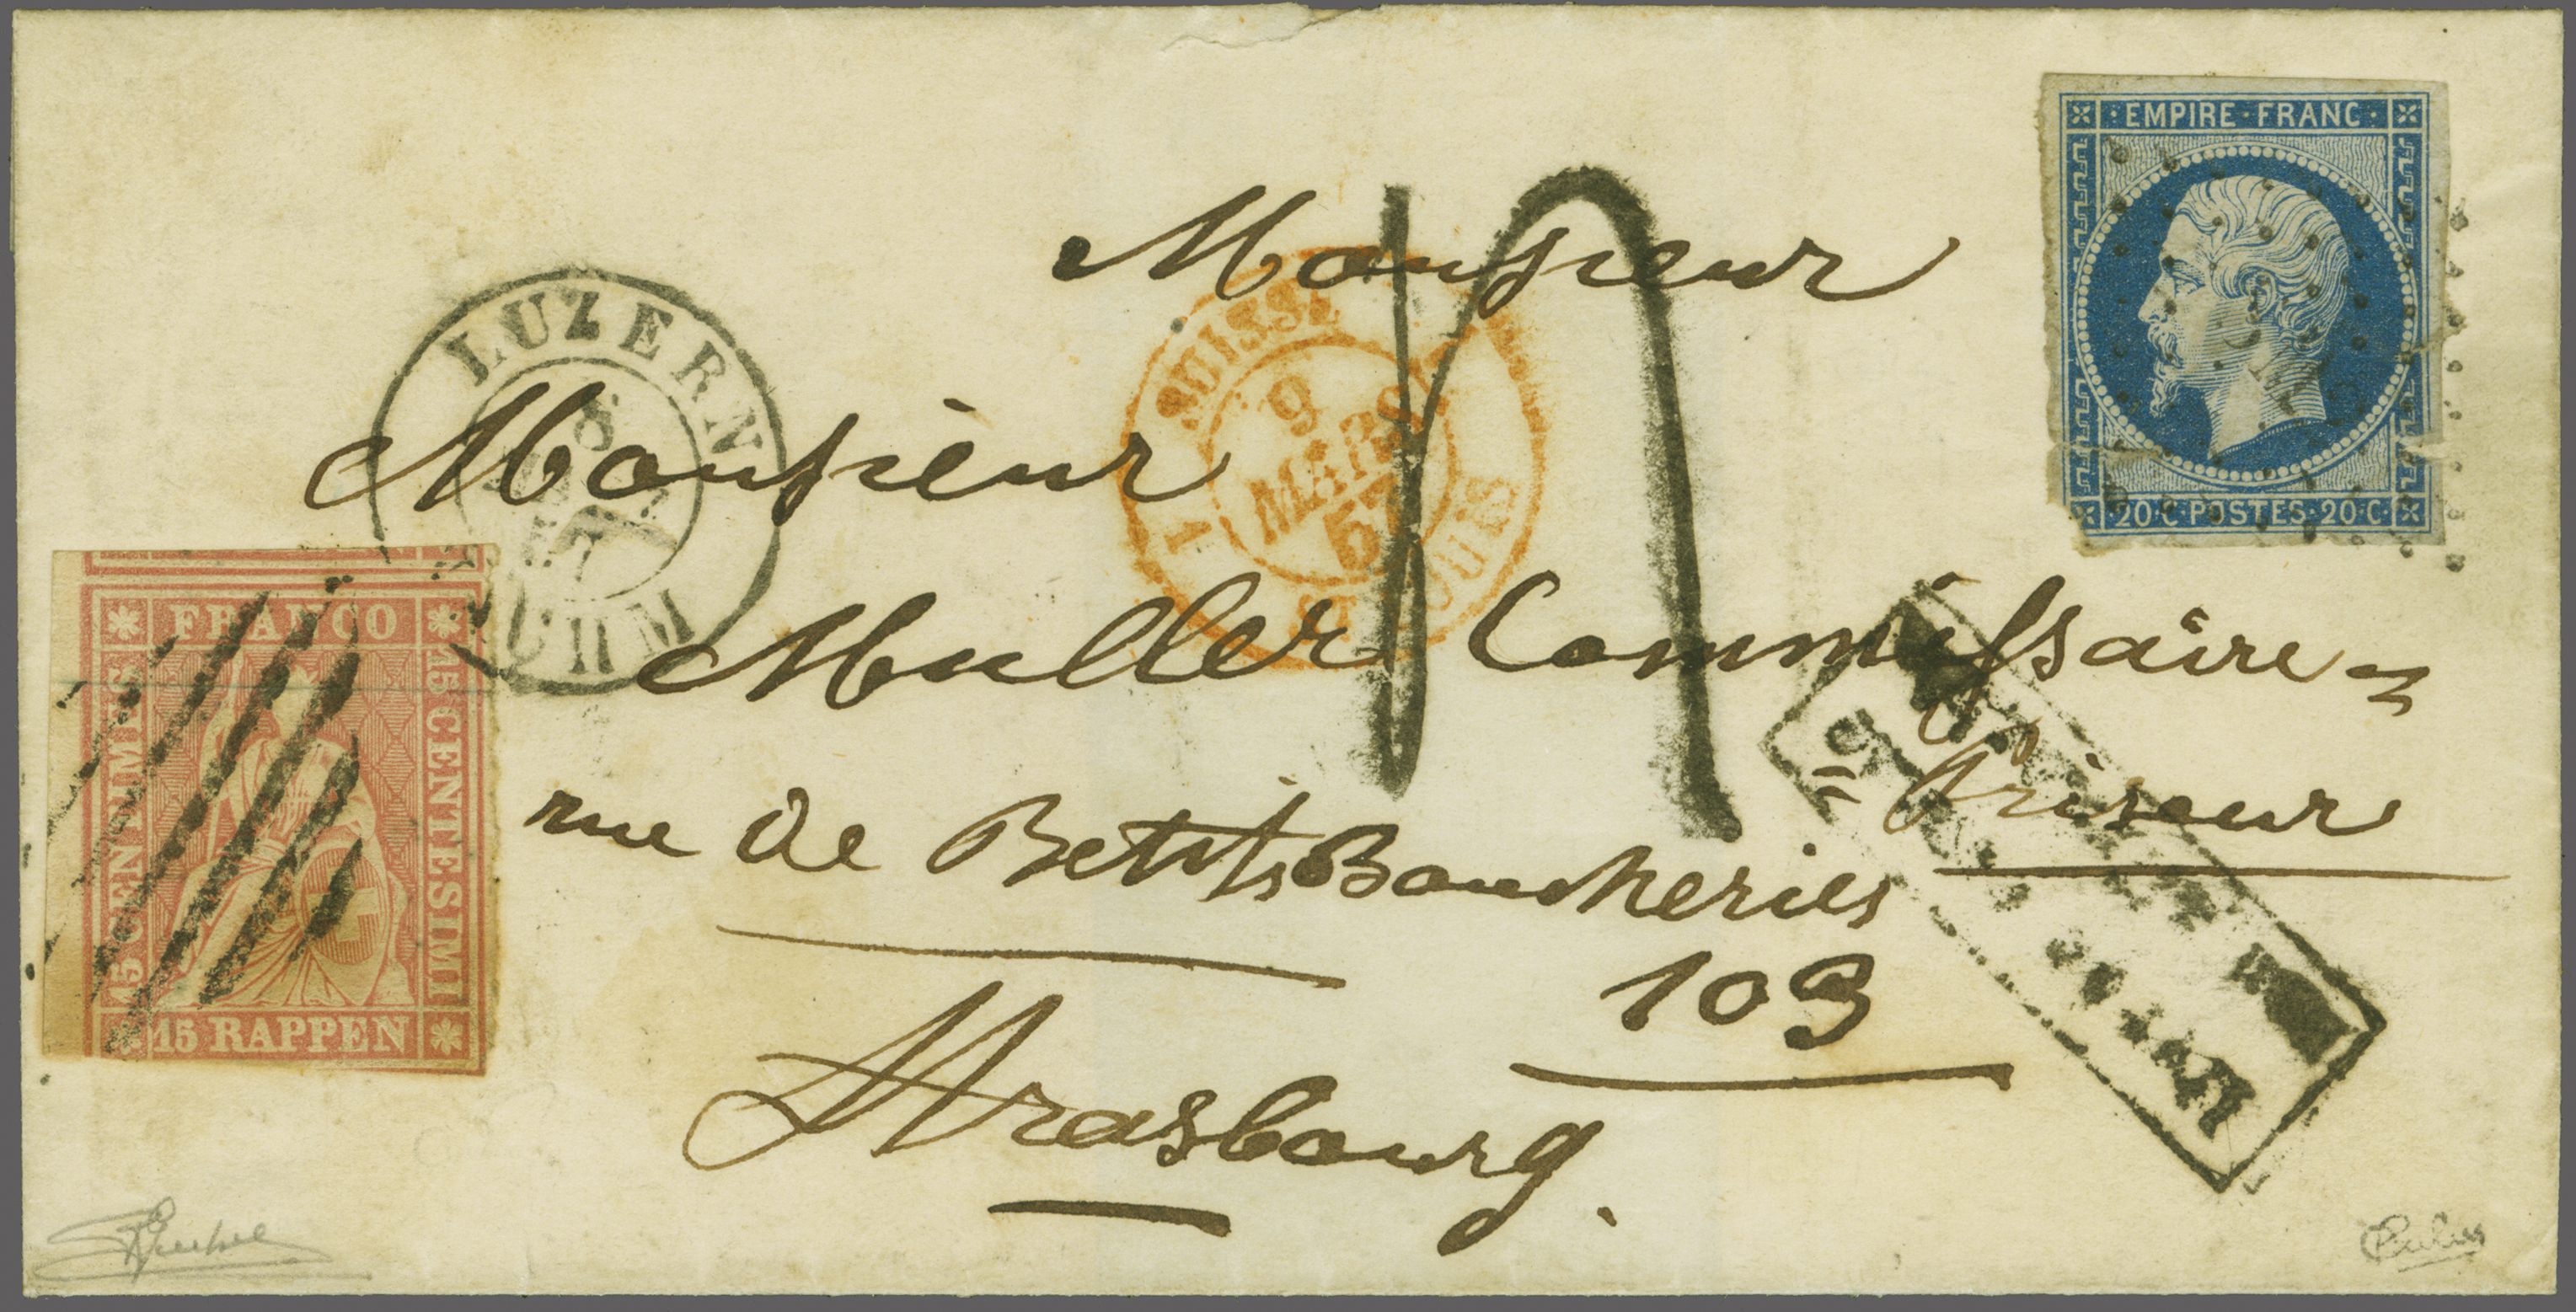 · EMPIRE · FRANC ·
20 · C · POSTES · 20 · C ·
LUZERN
8
57
SUISSE
9
MARS
57
ST LOUIS
1
Monsieur
Monsieur
Muller Commissaire
= Priseur
rue de Betits Boucheries
103
Strasbourg.
FRANCO
15 CENTIMES
15 CENTESIMI
15 RAPPEN